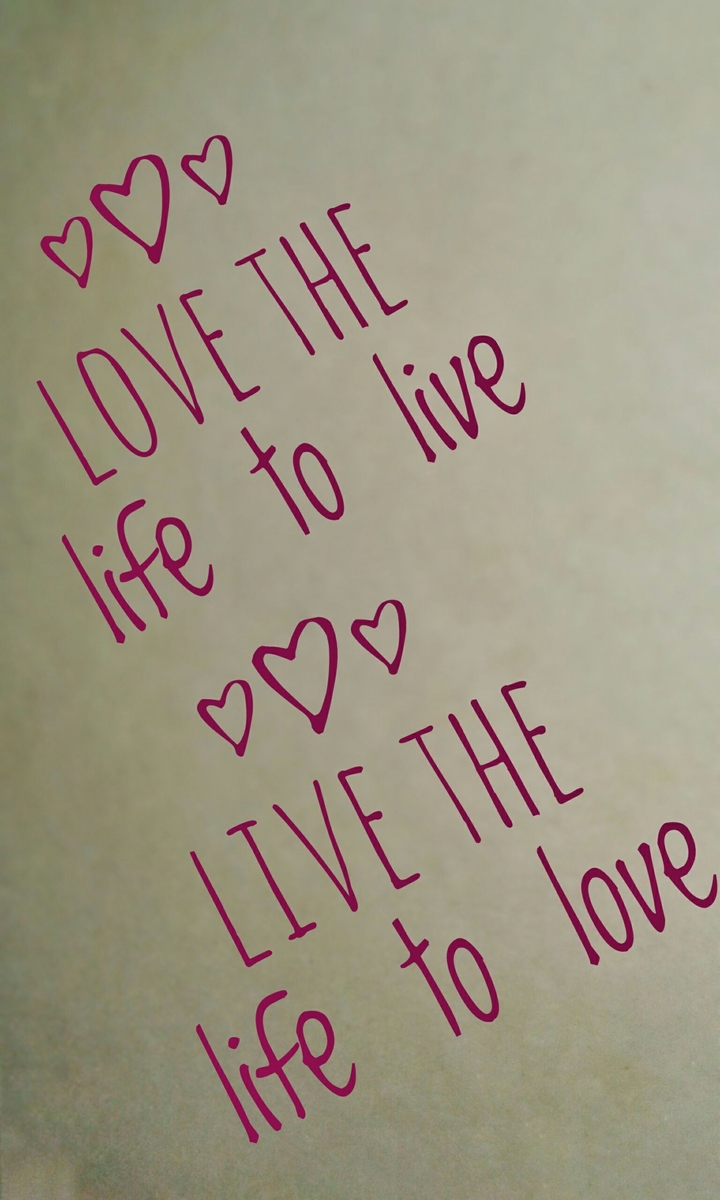 LOVE THE
life to live
LIVE THE
life to love